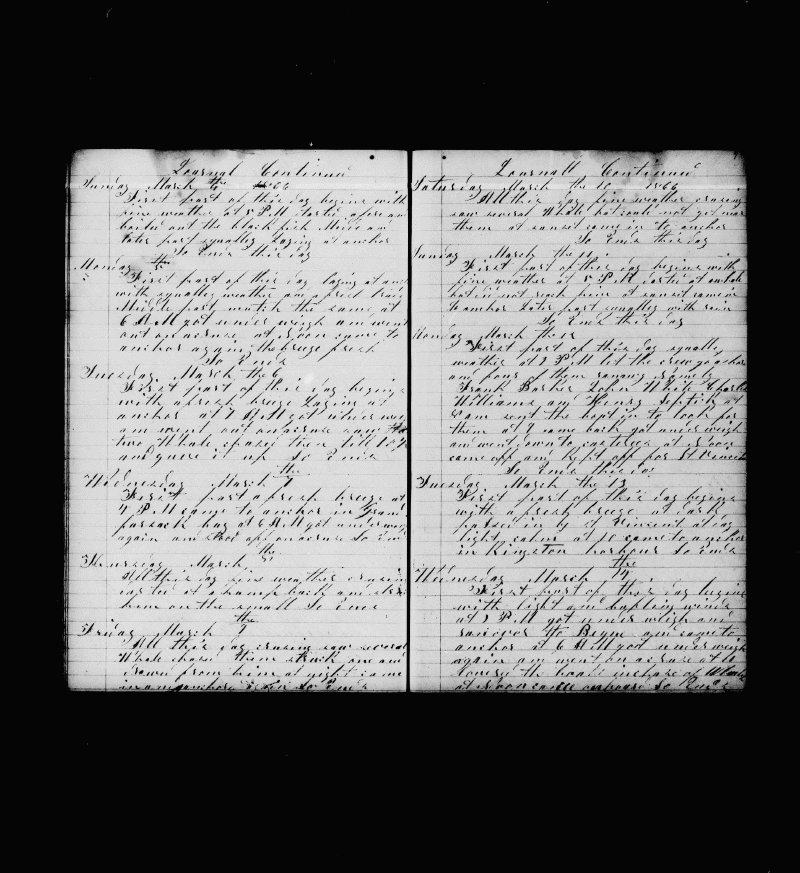 Journal Continued
Sunday March 4th 1866
First part of this day begins with
fine weather at 5 PM
boiled out the black fish Middle and
later part squally laying at anchor
So Ends this day
Monday 5th
First part of this day laying at anchor
with squally weather and a fresh
Middle part much the same at
6 AM got under weigh and went
out on a cruse at Noon came to
anchor again the breeze fresh
So Ends
Tuesday March the 6
First part of this day begins
with a fresh breeze Laying at
anchor at 7 AM got under weigh
and went out on a cruse saw
two Whale chased them till
and gave it up So Ends
Wednesday March 7 the
First part a fresh breeze at
4 PM came to anchor in Grand
bay at 6 AM got under weigh
again and off on a cruse So Ends
Thursday March the
All this day fine weather cruzing
at a hump back and
him on the small So Ends
Friday March the 9
All this day cruzing saw several
Whale chased them struck one and
from him at night came
So Ends
Journall Continued
Saturday March the 10 1866
All this day fine weather cruzing
saw several Whale but could not get near
them at sunset came in to anchor
So Ends this day
Sunday March the 11
First part of this day begins with
fine weather at 5 PM a whale
but did not reach him at sunset came in
to anchor Later part squally with rain
So Ends this day
Monday March the 12
First part of this day squally
weather at 1 PM let the crew go ashore
and some of them ranaway namely
Frank Barker John White Charles
Williams and Henry at
8 am sent the boat in to look for
them at 9 came back got under weigh
and went down to at Noon
came off and kept off for St Vincent
So Ends this day
Tuesday March the 13
First part of this day begins
with a fresh breeze at dark
passed in by St Vincent at day
light calm at 10 came to anchor
in Kingston harbour So Ends
Wednesday March the 14
First part of this day begins
with light and baffling winds
at 1 PM got under weigh and
to Bequia and came to
anchor at 6 AM got under weigh
again and went on a cruse at 10
lowered the boats in chase of
at Noon came onboard So Ends